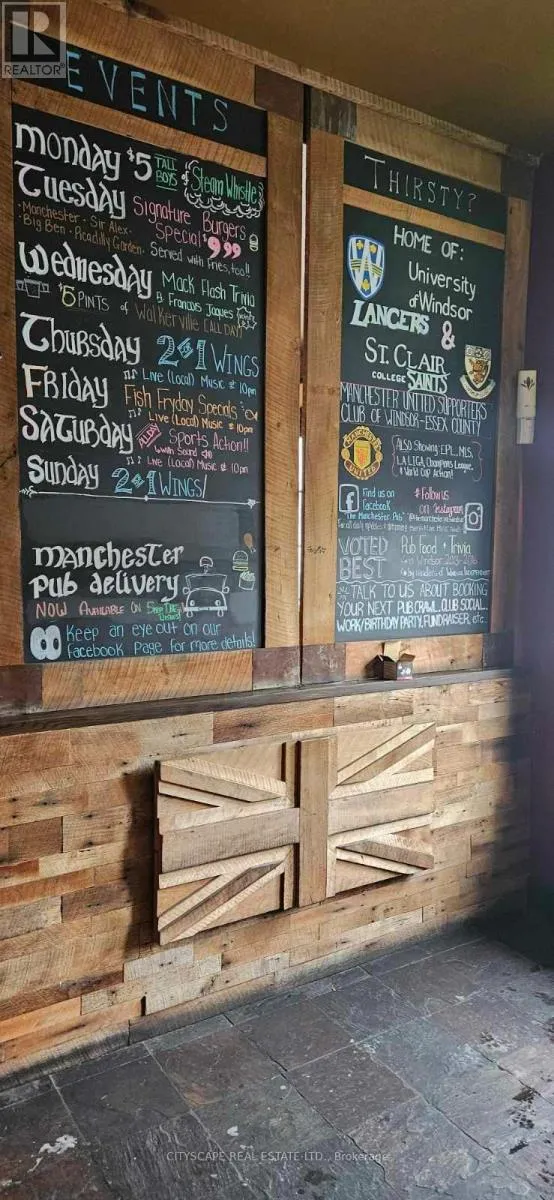 R
REALTOR®
EVENTS
Monday $5 TALL BOYS of Steam Whistle
Tuesday Signature Burgers Special $9.99
• Manchester • Sir Alex •
Big Ben • Picadilly Garden • Served with fries, too!!
Wednesday Mack Flash Trivia
By Francois Jaques
$6 PINTS of Walkerville (ALL DAY)
Thursday 2 4 1 WINGS
Live (Local) Music @ 10pm
FRIDAY Fish Fryday Specials
Live (Local) Music @ 10pm
SATURDAY ALLDAY Sports Action!!
With Sound
Live (Local) Music @ 10pm
Sunday 2 4 1 WINGS!
manchester
pub delivery
NOW AVAILABLE ON
KEEP AN EYE OUT ON OUR
Facebook PAGE FOR MORE DETAILS!
THIRSTY?
HOME OF:
University
of Windsor
LANCERS &
ST. CLAIR
COLLEGE SAINTS
MANCHESTER UNITED SUPPORTERS
CLUB OF WINDSOR-ESSEX COUNTY
MANCHESTER
UNITED
ALSO Showing: EPL, MLS,
LA LIGA, Champions League,
& World Cup Action!
Find us on
Facebook
"The Manchester Pub"
# Follow us
on Instagram
VOTED
BEST
Pub Food + Trivia
in Windsor 2015-2016
TALK TO US ABOUT BOOKING
YOUR NEXT PUB CRAWL, CLUB SOCIAL,
WORK/BIRTHDAY PARTY, FUNDRAISER, etc..
CITYSCAPE REAL ESTATE LTD., Brokerage